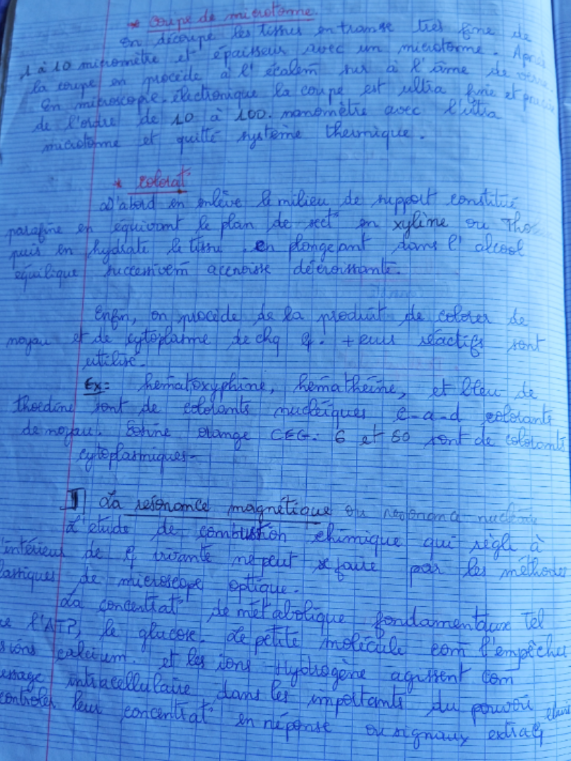 * coupe de microtome
on découpe les tissus en transe très fine de
1 à 10 micromètre et épaisseur avec un microtome. Après
la coupe on procède à l'étalem sur à l'âme de
En microscopie électronique la coupe est ultra fine et
de l'ordre de 10 à 100. nanomètre avec l'ultra
microtome et quitté système thermique.
* colorat°
D'abord on enlève le milieu de support constitué
parafine en le plan de sect° en xylène ou
puis on hydrate le tissu en plongeant dans l'alcool
successivem décroissante.
Enfin, on procède de la produit de colorer le
noyau et de cytoplasme de chq +eurs réactifs sont
utilisé.
Ex: hématoxyphine, hémathéine, et bleu de
sont de colorants nucléiques c-a-d colorants
de noyau. orange 6 et 50 sont de colorants
cytoplasmiques-
La résonance magnétique ou
L'étude de combustion chimique qui règle à
l'intérieur de vivante ne peut se faire par les méthodes
de microscope optique.
La concentrat° de métabolique fondamentaux tel
l'ATP, le glucose. Le petite molécule com l'empêcher
calcium et les ions Hydrogène agissent com
intracellulaire dans les importants du pouvoir
contrôler leur concentrat° en réponse ou signaux